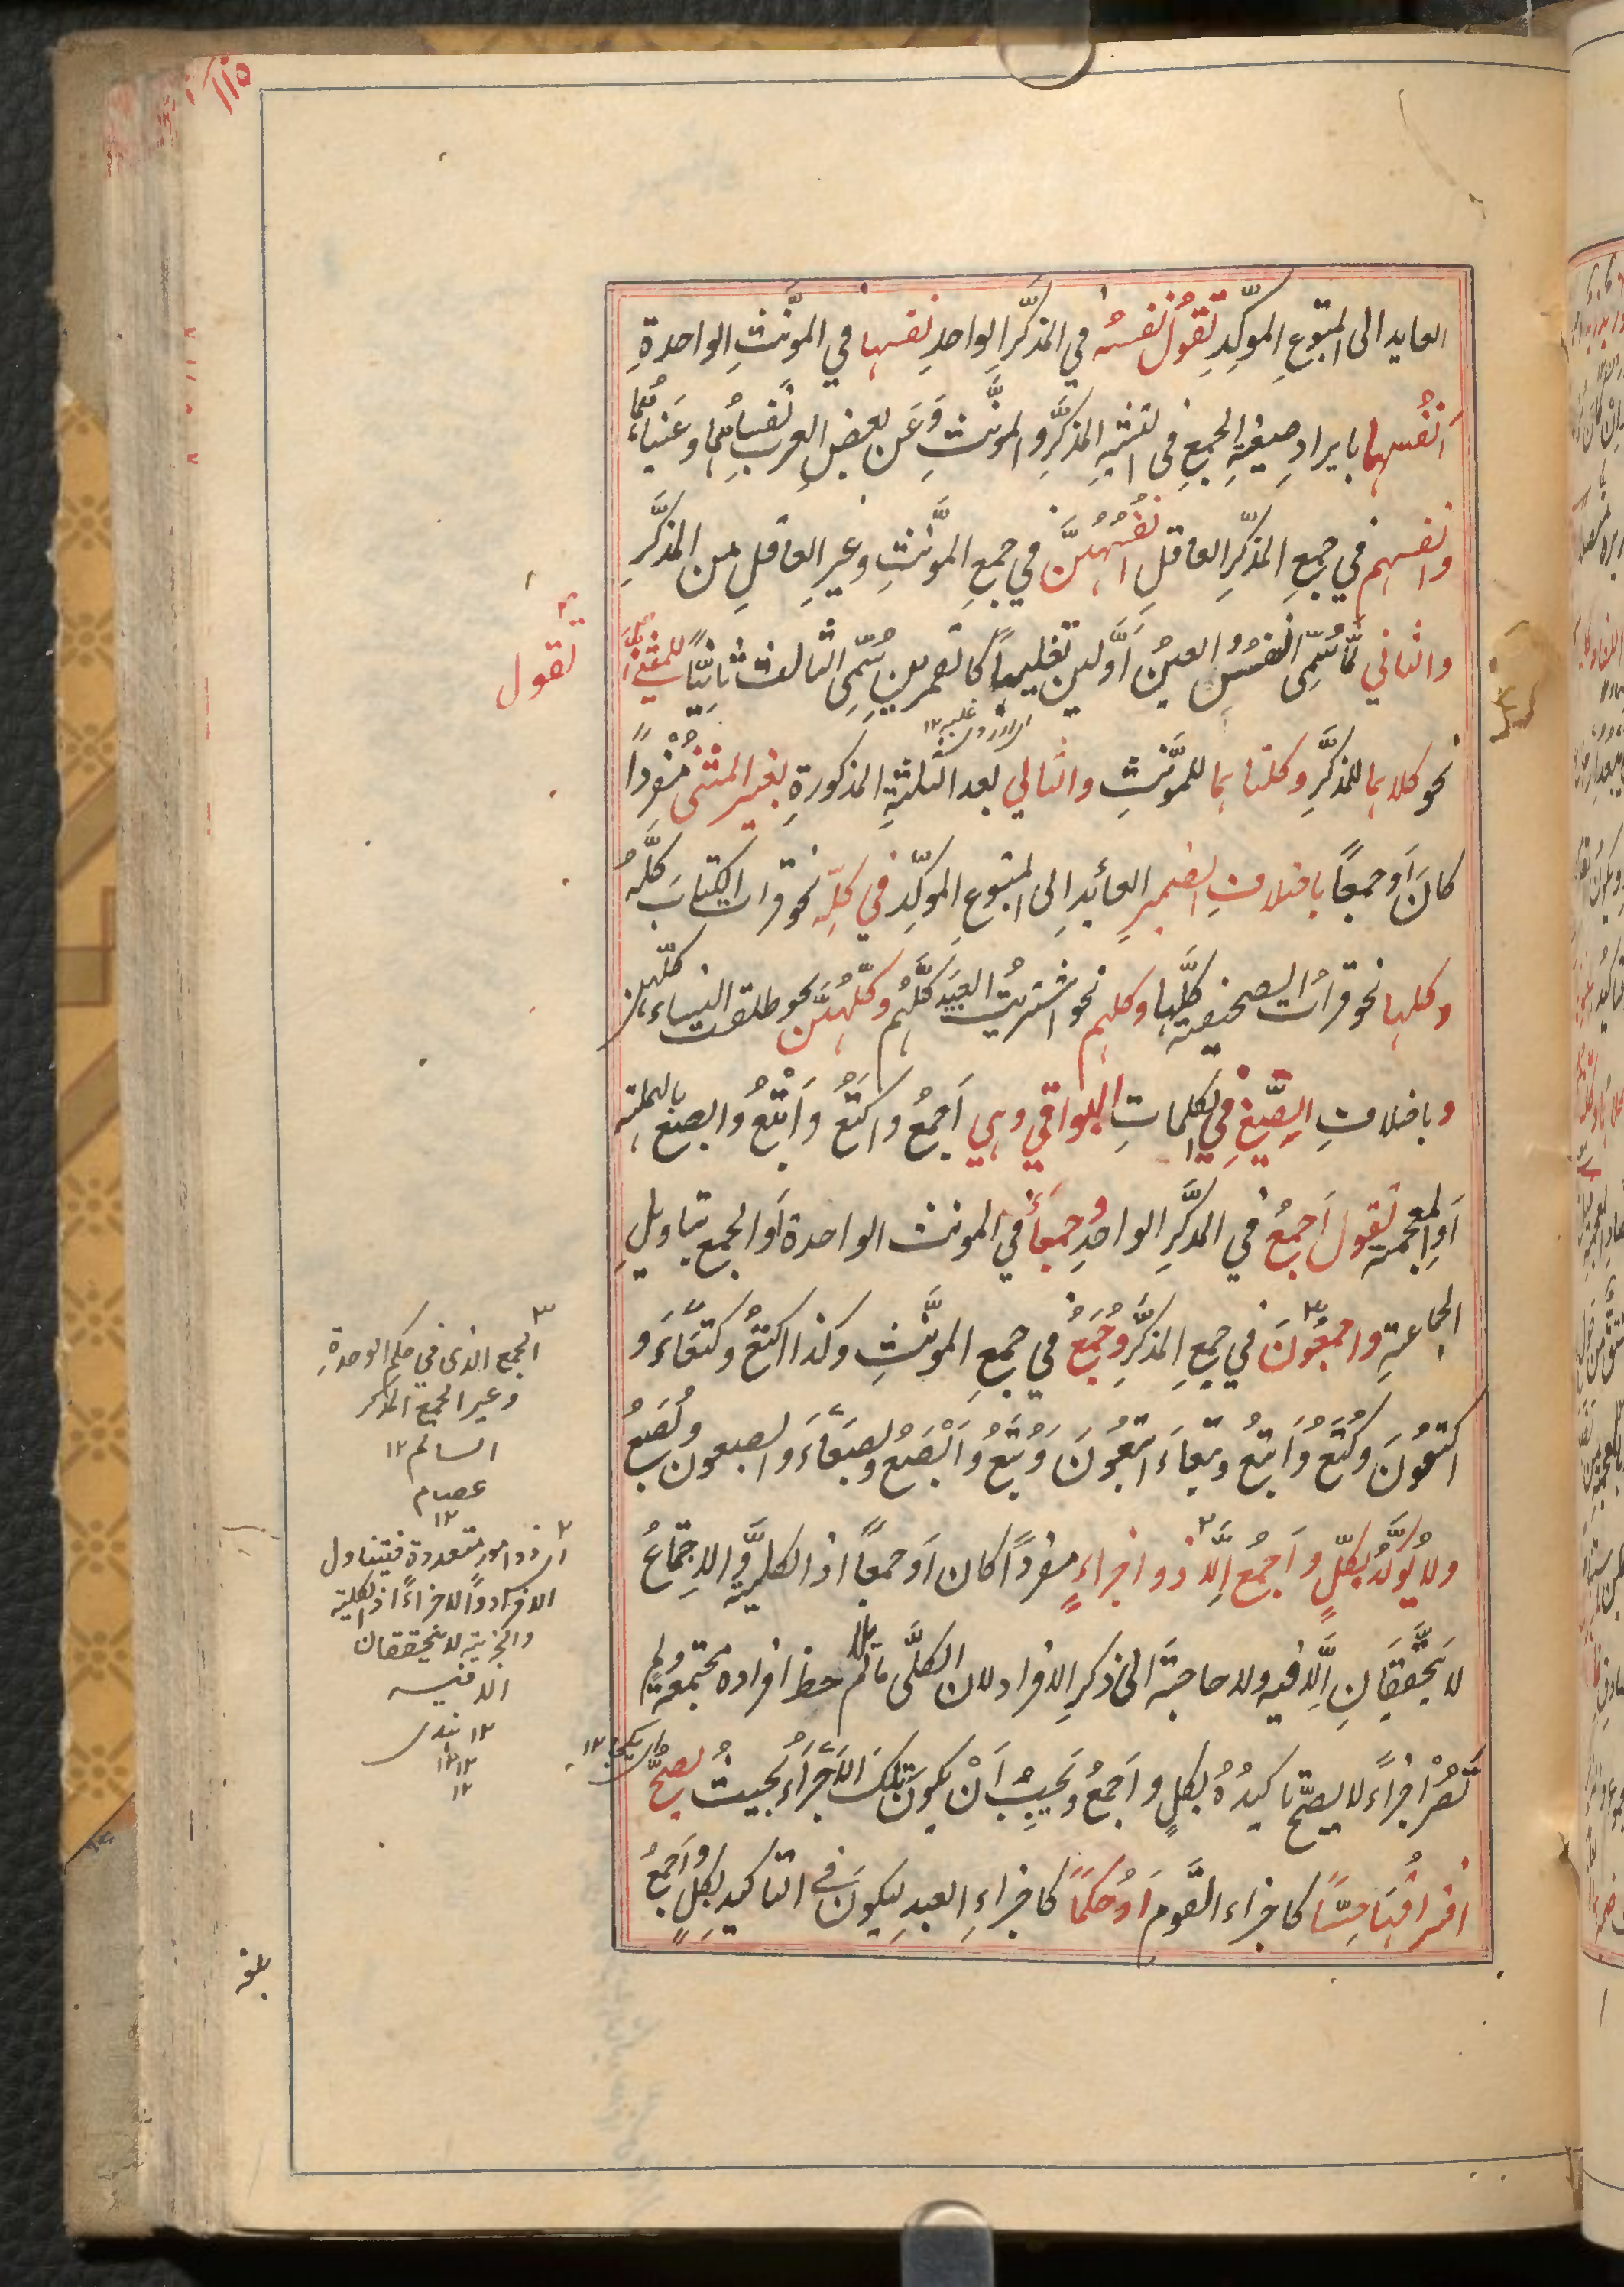 العايد الى المتبوعِ الموكّدِ تقولُ نفسُه في المذكّرِ الواحدِ نفسها في المؤنّثِ الواحدةِ
اَنفُسهما بايرادِ صيغةِ الجمعِ في تثنيةِ المذكّرِ والمونّثِ وَعَن بعضِ العربِ نَفساهُما وعَيناهُما
وانفسهم في جمعِ المذكّرِ العاقلِ انفُسُهُنَّ في جمعِ المؤنّثِ وغيرِ العاقلِ من المذكَّرِ
والثاني لمّا سُمِّى النفسُ والعينُ اَوَّلينِ تغليبًا كالقمرينِ سُمِّى الثالث ثانيًا للمثنّى
تقول
نحو كلاهما للمذكَّرِ وكلتاهما للمؤنّثِ والتالي بعد الثلثةِ المذكورةِ لغير المثنى مُفْردًا
كانَ اَو جمعًا باختلافِ الضميرِ العائدِ اِلى المتبوعِ الموكّدِ في كلّه نحو قرات الكتابَ كلَّهُ
وكلها نحو قراتُ الصحيفة كلَّها وكلهم نحو اشتريتُ العبيدَ كلَّهُم وكلّهُنَّ نحو طلقت النساء كلّهن
وباختلافِ الصِّيَغِ في الكلماتِ البواقي وهي اَجمعُ واَكتعُ واَبْتَعُ وابصعُ بالمهملة
اَوِ المعجمة تقول اَجمعُ في المذكَّرِ الواحدِ وجمعاُ في المونث الواحدة اَو الجمع بتاويلِ
الجماعةِ واجمعُونَ في جمعِ المذكّرِ وجُمَعُ في جمعِ المونّثِ وكذا اكتعُ وكتعَاءَ و
اكتعُونَ وكُتَعُ وَابتعُ وبتعاءَ ابتعُونَ وَبُتَعُ وَاَبْصَعُ وبصعَاءَ وابصعون وبُصَعُ
ولا يُوَكَّدُ بكلٍّ واَجمعُ اِلَّا ذو اجزاءٍ مفردًا كان اَو جمعًا اذ الكليّةُ والاجتماعُ
لا يتحَقَّقَانِ اِلَّا فيه ولا حاجةَ الى ذكرِ الافراد لان الكلّى ما لم يلاحظ افراده مجتمعةً ولم
تَصْر اجزاءً لا يصحّ تاكيدُهُ بكلٍ واَجمعُ ويَجبُ اَنْ يكونَ تلكَ الاَجزاءُ بحيثُ يصحُّ
افتراقُها حسًّا كاجزاءِ القومِ اَو حُكمًا كاجزاءِ العبدِ ليكونَ في التاكيد بكلٍ واَجمعُ
الجمع الذى في حكم الوحدةِ
وغير الجمع المذكر
السالم ١٢
عصام
١٢
اى ذو امور متعددة فيتناول
الافراد والاجزاء اذ الكلية
والجزئية لا يتحققان
الا فيه
١٢ هندى
١٢
١٢